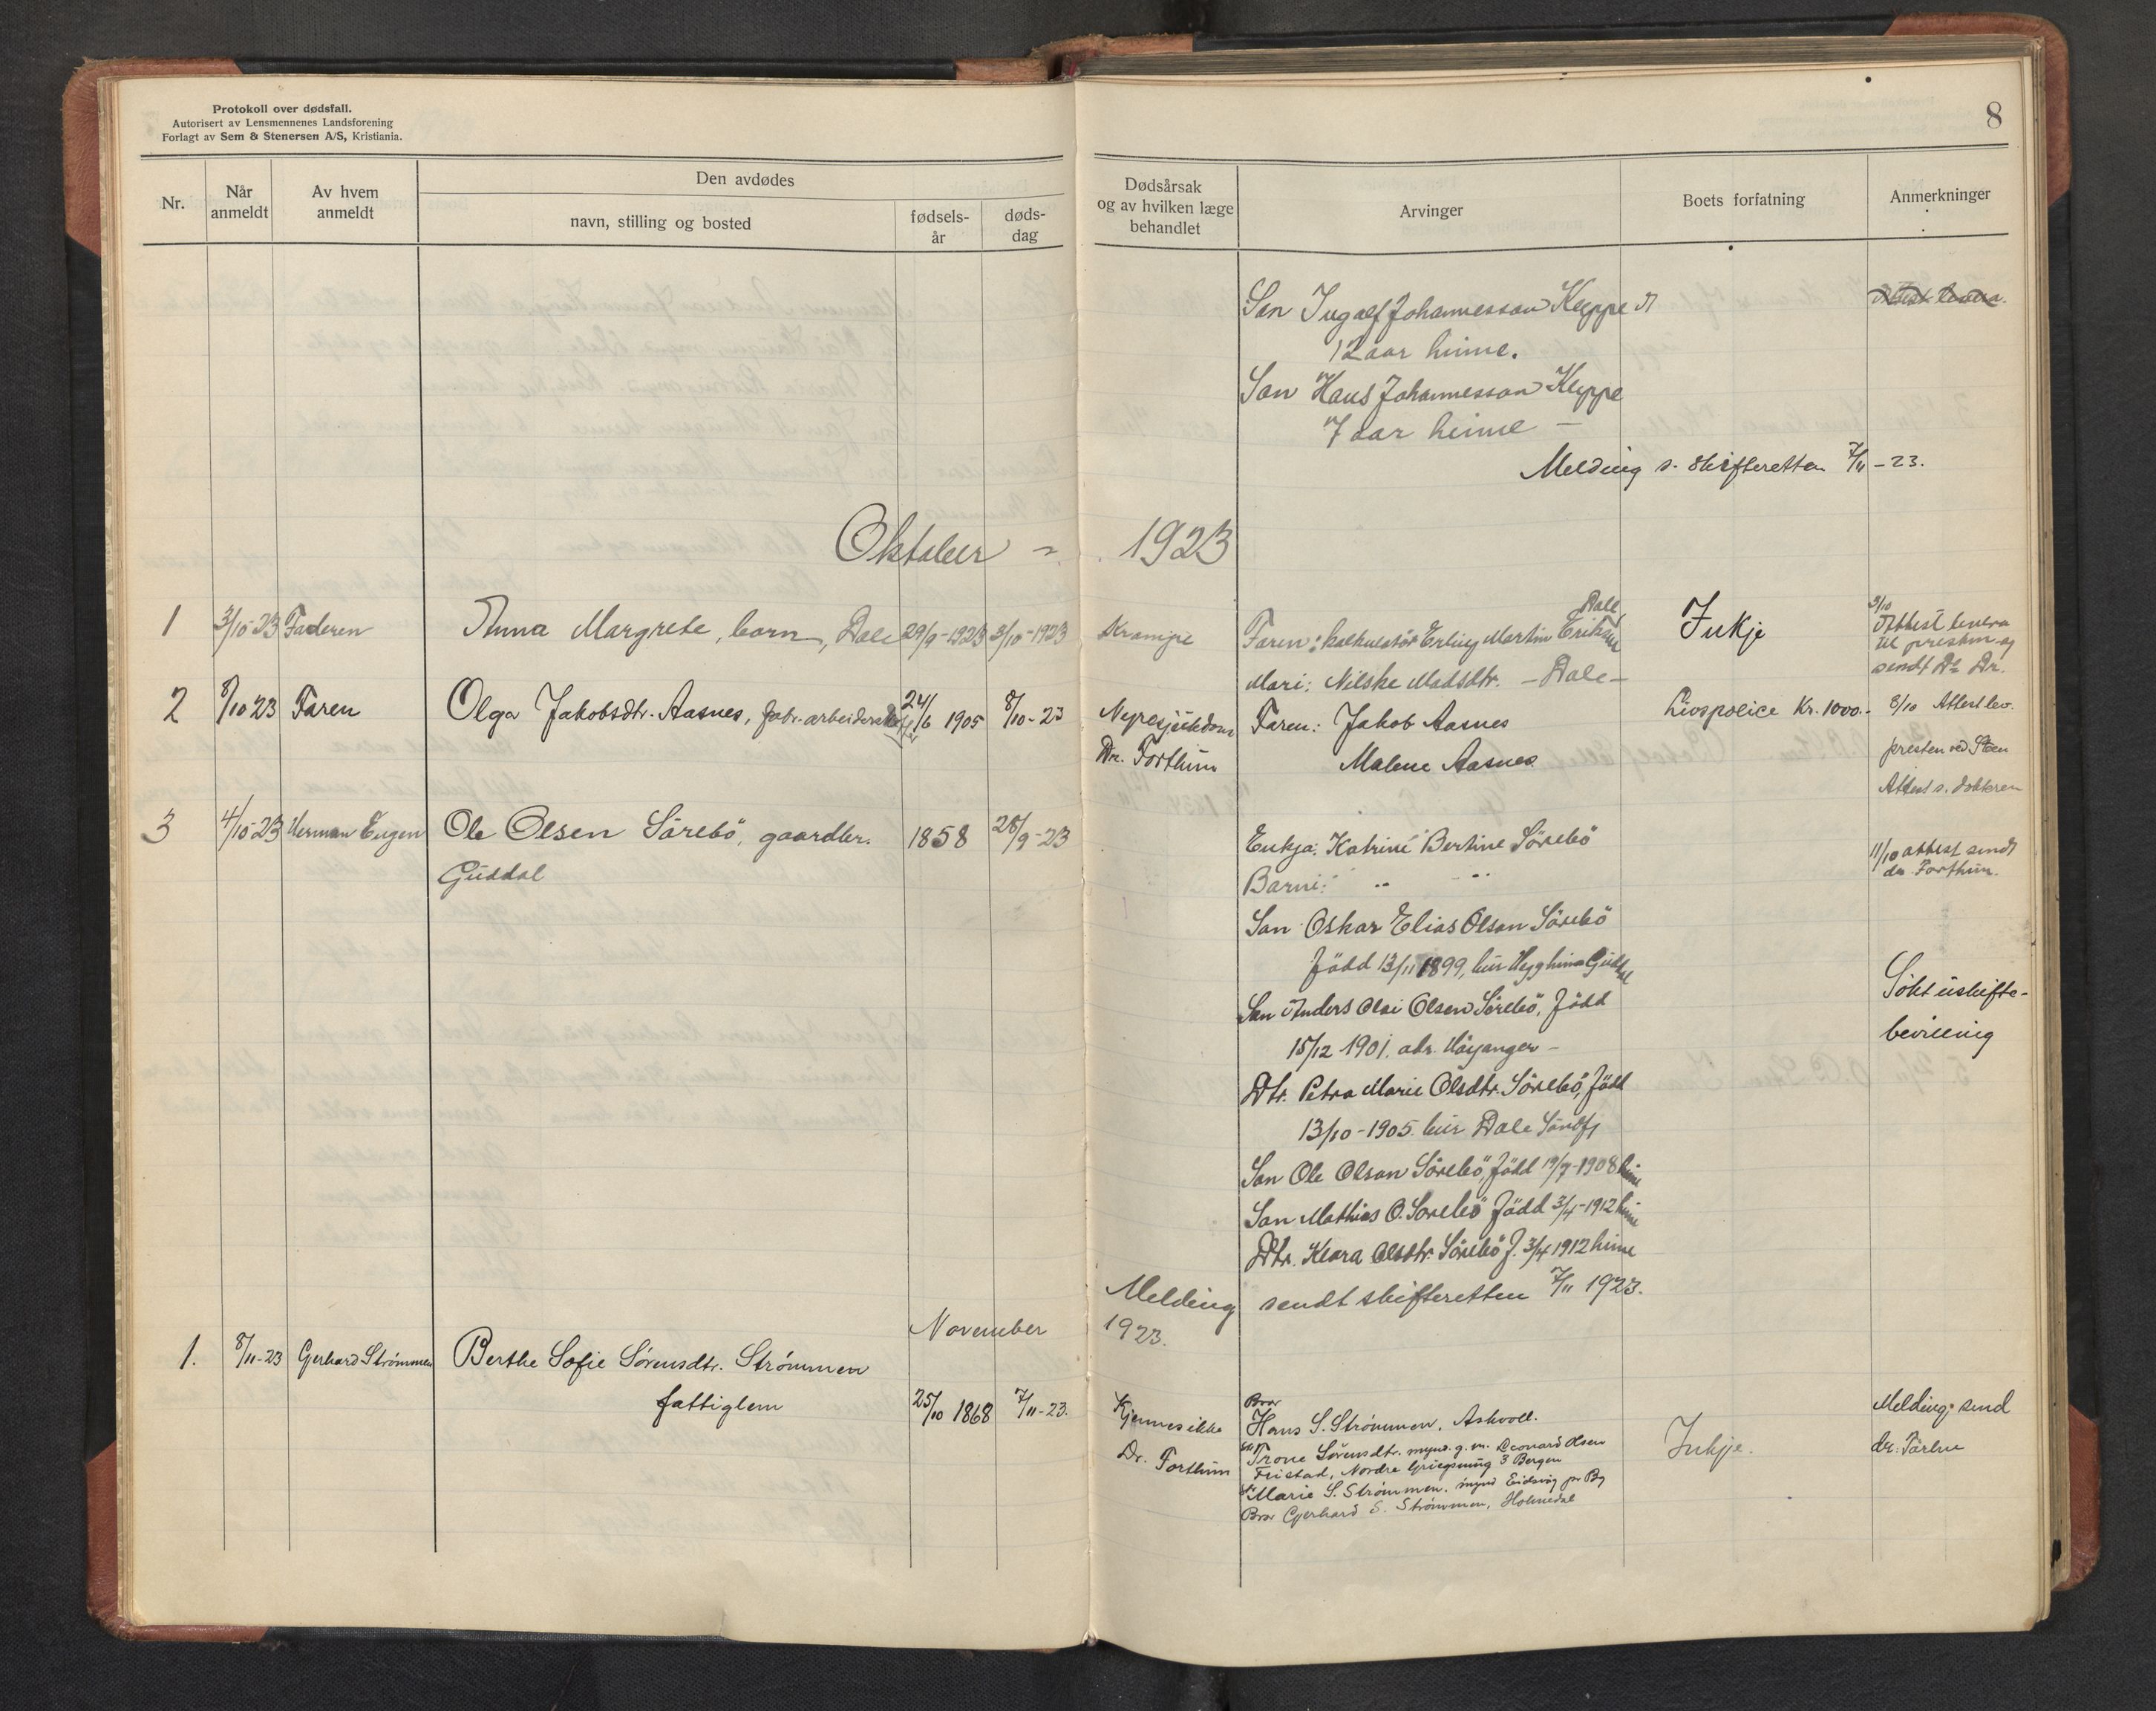 Protokoll over dødsfall.
Autorisert av Lensmennenes Landsforening
Forlagt av Sem & Stenersen A/S, Kristiania.
8
Nr.
Når anmeldt
Av hvem anmeldt
Den avdødes
navn, stilling og bosted
fødsels-år
døds-dag
Dødsårsak
og av hvilken læge
behandlet
Arvinger
Boets forfatning
Anmerkninger
Son Ingolf Johannesson Kleppe
12 aar heime.
Son Hans Johannesson Kleppe
7 aar heime –
Melding s. skifteretten 7/11 – 23.
Oktober – 1923
1 3/10-23 Faderen Anna Margrete, born, Dale 29/9-1923 3/10-1923 Krampe
Faren: kalkulatör Erling Martin Eriksen Dale
Mori: Nilske Madsdtr. – Dale –
Inkje
3/10
Attest levera
til presten og
sendt Dr.
2 8/10 23 Faren Olga Jakobsdtr. Aasnes, fabr. arbeiderske 24/6 1905 8/10-23
Nyresjukdom
Dr. Forthun
Faren: Jakob Aasnes
Malene Aasnes
Livspolice Kr. 1000.-
8/10 Attest lev.
presten ved
Attest s. doktoren
3 4/10-23 Herman Eugen Ole Olsen Sörebö, gaardbr. 1858 28/9-23
Guddal
Enkja: Katrine Bertine Sörebö
Barni: " "
Son Oskar Elias Olson Sörebö
född 13/11 1899, bur Hegheim Guddal
Son Anders Olai Olsen Sörebö, född
15/12 1901. adr. Höyanger –
Dtr. Petra Marie Olsdtr. Sörebö, född
13/10-1905. bur Dale Sandfj
Son Ole Olson Sörebö, född 19/7-1908 heime
Son Mathias O. Sörebö född 3/4-1912 heime
Dtr. Klara Olsdtr. Sörebö f. 3/4 1912 heime
11/10 attest sendt
dr. Forthun.
Sökt uskifte-
bevilling
Melding sendt skifteretten 7/11 1923.
November 1923.
1. 8/11-23 Gerhard Strömmen Berthe Sofie Sörensdtr. Strömmen
fattiglem 25/10 1868 7/11-23.
Kjennes ikke
Dr. Forthun
Bror
Hans S. Strömmen, Askvoll.
Trone Sörensdtr. mynd. g. m. Leonard Olsen
Nordre 3 Bergen
Marie S. Strömmen, mynd Eidsvåg pr Bg
Bror Gerhard S. Strömmen, Holmedal
Inkje.
Melding send
dr.